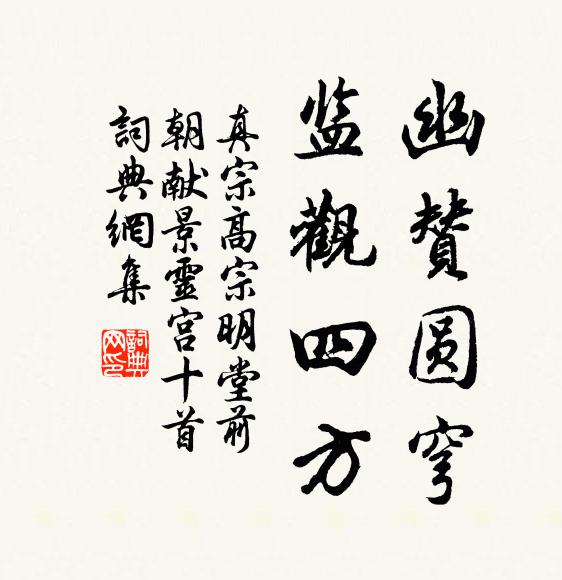 幽赞圆穹
监觀四方
真宗高宗明堂前
朝献景靈宫十首
詞典網集
詞典网印